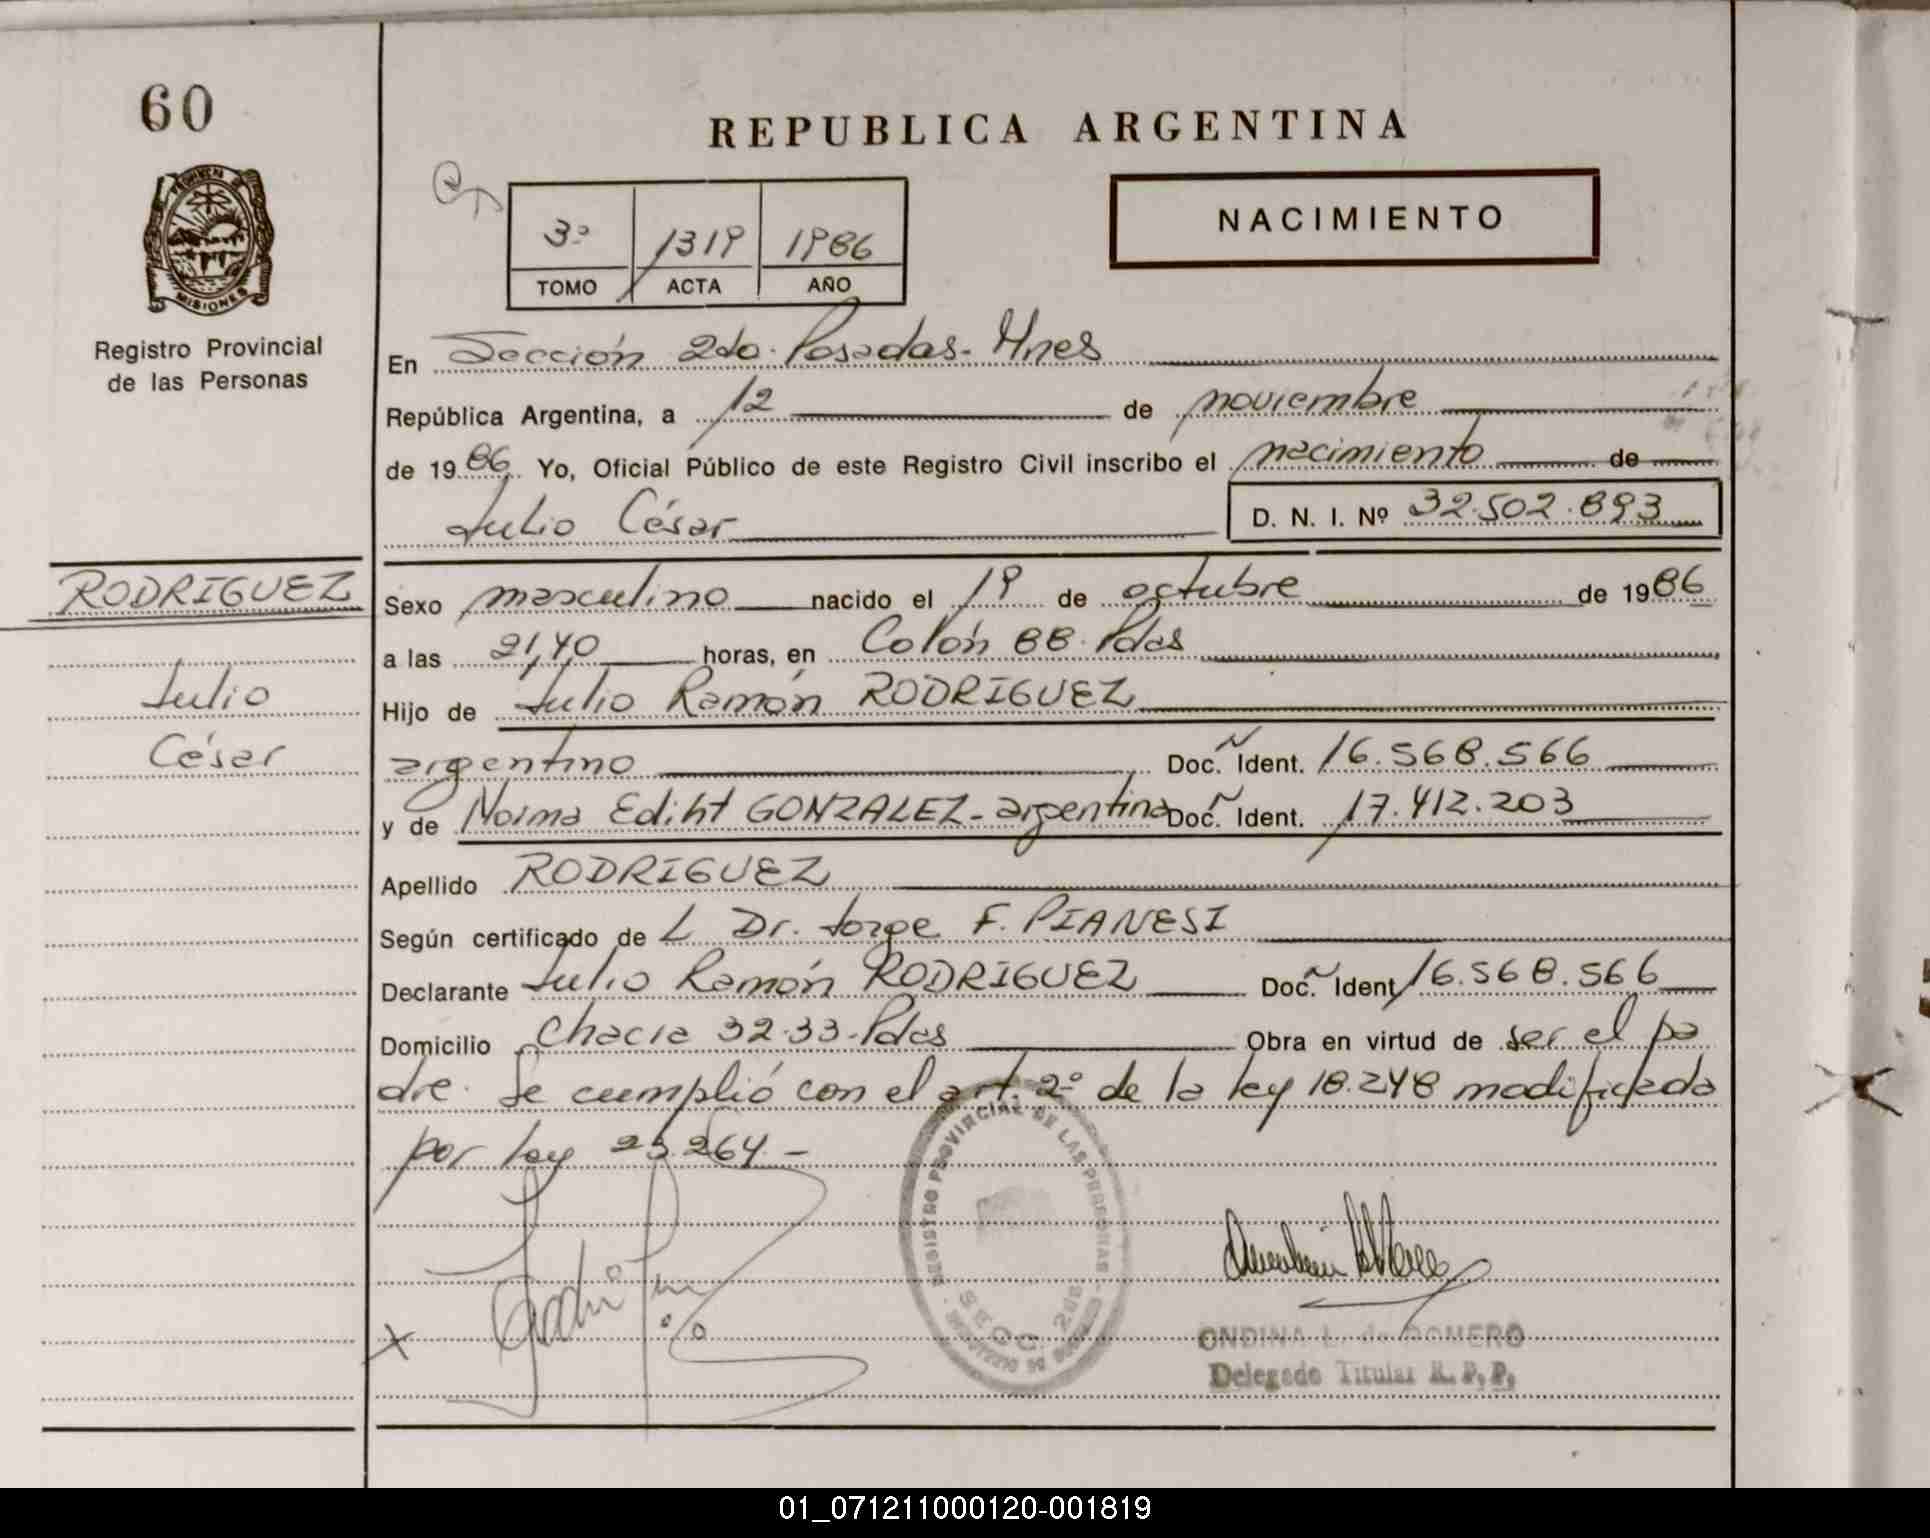 60
REPUBLICA ARGENTINA
PROVINCIA DE
MISIONES
Registro Provincial
de las Personas
3º 1319 1986
TOMO ACTA AÑO
NACIMIENTO
En Sección 2da. Posadas- Mnes
República Argentina, a 12 de noviembre
de 1986 Yo, Oficial Público de este Registro Civil inscribo el nacimiento de
Julio César D. N. I. Nº 32.502.893
RODRIGUEZ
Julio
César
Sexo masculino nacido el 19 de octubre de 1986
a las 21,40 horas, en Colón 88. Pdas
Hijo de Julio Ramón RODRIGUEZ
argentino Doc. Ident. 16.568.566
y de Norma Ediht GONZALEZ- argentina Doc. Ident. 17.412.203
Apellido RODRIGUEZ
Según certificado de L Dr. Jorge F. PIANESI
Declarante Julio Ramón RODRIGUEZ Doc. Ident 16.568.566
Domicilio Chacra 32-33-Pdas Obra en virtud de ser el pa
dre. Se cumplió con el art 2º de la ley 18.248 modificada
por ley 23.264.-
REGISTRO PROVINCIAL DE LAS PERSONAS
SECC. 2da
ONDINA L. de ROMERO
Delegado Titular R. P. P.
01_071211000120-001819